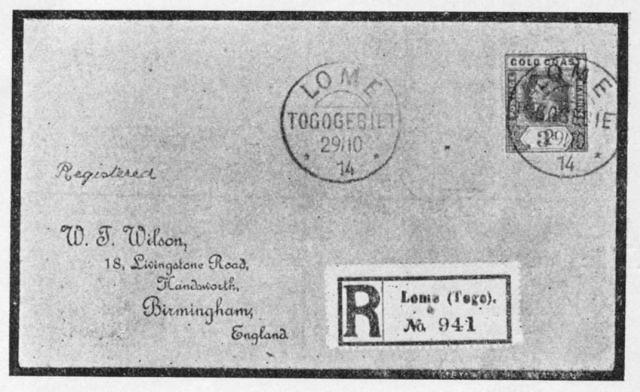 LOME
TOGOGEBIET
29/10
14
GOLD COAST
LOME
14
Registered
W. T. Wilson,
18, Livingstone Road,
Handsworth,
Birmingham,
England
R
Lome (Togo).
No 941